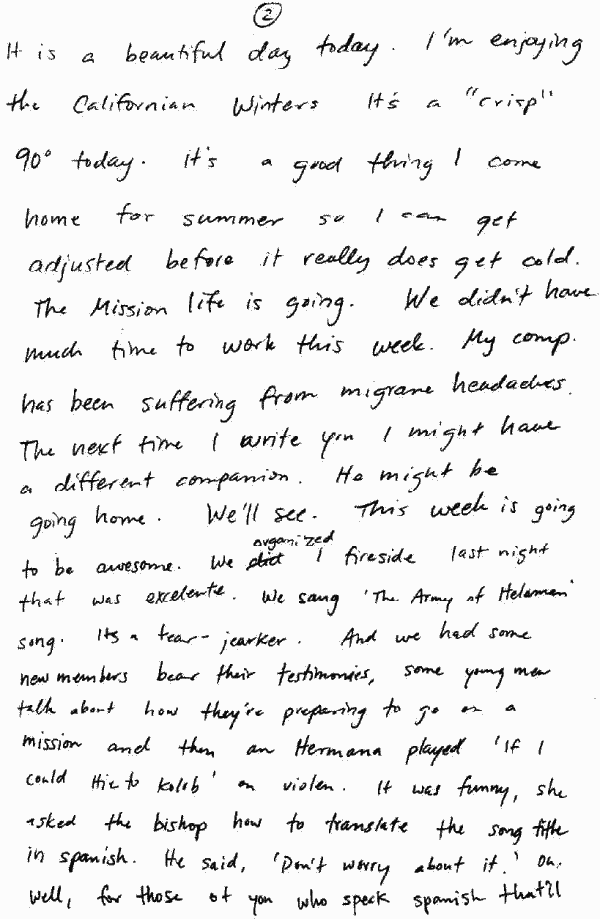 2
It is a beautiful day today. I'm enjoying
the Californian Winters It's a "crisp"
90° today. it's a good thing I come
home for summer so I can get
adjusted before it really does get cold.
The Mission life is going. We didn't have
much time to work this week. My comp.
has been suffering from migrane headaches.
The next time I write you I might have
a different companion. He might be
going home. We'll see. This week is going
organized
to be awesome. We did 1 fireside last night
that was excelente. We sang 'The Army of Helaman'
song. Its a tear-jearker. And we had some
new members bear their testimonies, some young men
talk about how they're preparing to go on a
mission and then an Hermana played 'If I
could Hie to Kolob' on violen. It was funny, she
asked the bishop how to translate the song title
in spanish. He said, 'Don't worry about it.' Oh,
well, for those of you who speak spanish that'll